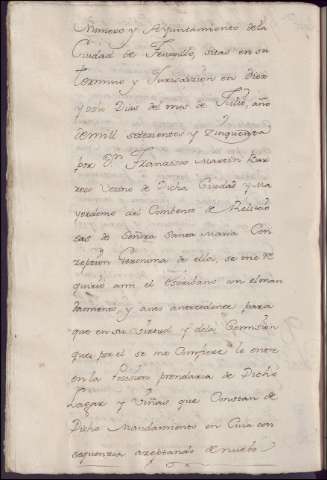 Numero y Ayuntamiento dela
Ciudad de Trugillo, sitas en su
termino y Jurisdizion en diez
y ocho Dias del mes de Julio, año
demill setezientos y zinquenta
por Dn Franzisco Martin Bar
rero Vezino de Dicha Ciudad y Ma
yordomo del Combento de Religio
sas de Señora Santa Maria Con
zepzion Geronima de ella, se me re
quirio ami el escribano con el man
damiento, y autos antezedente para
que en su virtud y dela Comision
que por el se me Confiere le entre
en la Posesion prendaria de Dicho
Lagar y Viñas que Constan de
Dicho Mandamiento en Cuia con
sequenzia azeptando de nuebo